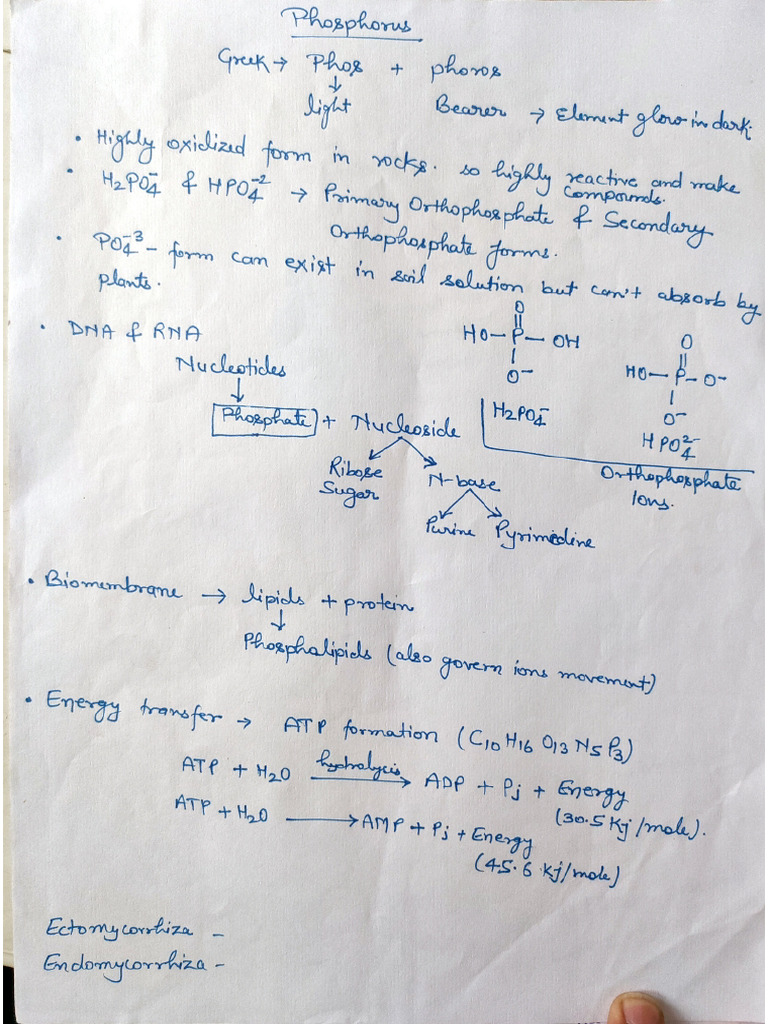 Phosphorus
Greek → Phos + phoros
↓
light Bearer → Element glow in dark.
• Highly oxidized form in rocks. so highly reactive and make compounds.
• H2PO4- & HPO4-2 → Primary Orthophosphate & Secondary
Orthophosphate forms.
• PO4-3 – form can exist in soil solution but can't absorb by
plants.
• DNA & RNA
Nucleotides
↓
Phosphate + Nucleoside
Ribose Sugar
N-base
Purine Pyrimidine
O
HO – P – OH
O-
H2PO4-
O
HO – P – O-
O-
HPO4 2-
Orthophosphate
Ions.
• Biomembrane → lipids + protein
↓
Phosphalipids (also govern ions movement)
• Energy transfer → ATP formation (C10 H16 O13 N5 P3)
ATP + H2O hydralycis → ADP + Pj + Energy
(30.5 Kj/mole).
ATP + H2O → AMP + Pj + Energy
(45.6 Kj/mole)
Ectomycorrhiza –
Endomycorrhiza –